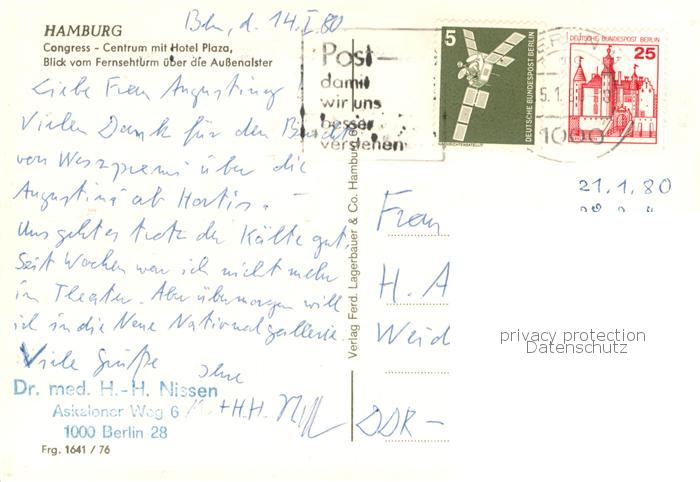 HAMBURG
Congress - Centrum mit Hotel Plaza,
Blick vom Fernsehturm über die Außenalster
Bln, d. 14.I.80
Liebe Frau Augustiny!
Vielen Dank für den
von Weszpremi über die
Augustina ab Hortis.
Uns geht es trotz der Kälte gut.
Seit Wochen war ich nicht mehr
im Theater. Aber übermorgen will
ich in die Neue Nationalgallerie.
Viele Grüße Ihre
+ H.H.
Dr. med. H.-H. Nissen
Askaloner Weg 6
1000 Berlin 28
Frg. 1641 / 76
Verlag Ferd. Lagerbauer & Co. Hamburg
Post-
damit
wir uns
besser
verstehen
5
DEUTSCHE BUNDESPOST BERLIN
NACHRICHTENSATELLIT
DEUTSCHE BUNDESPOST BERLIN
25
BERLIN
5.1.
1000
21.1.80
Frau
H. A
Weid
DDR-
privacy protection
Datenschutz